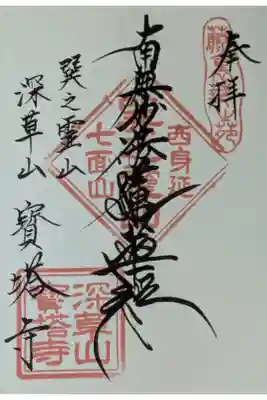 奉拝
南無妙法蓮華経
西身延
七面山
巽之靈山
深草山 寳塔寺
深草山
寳塔寺